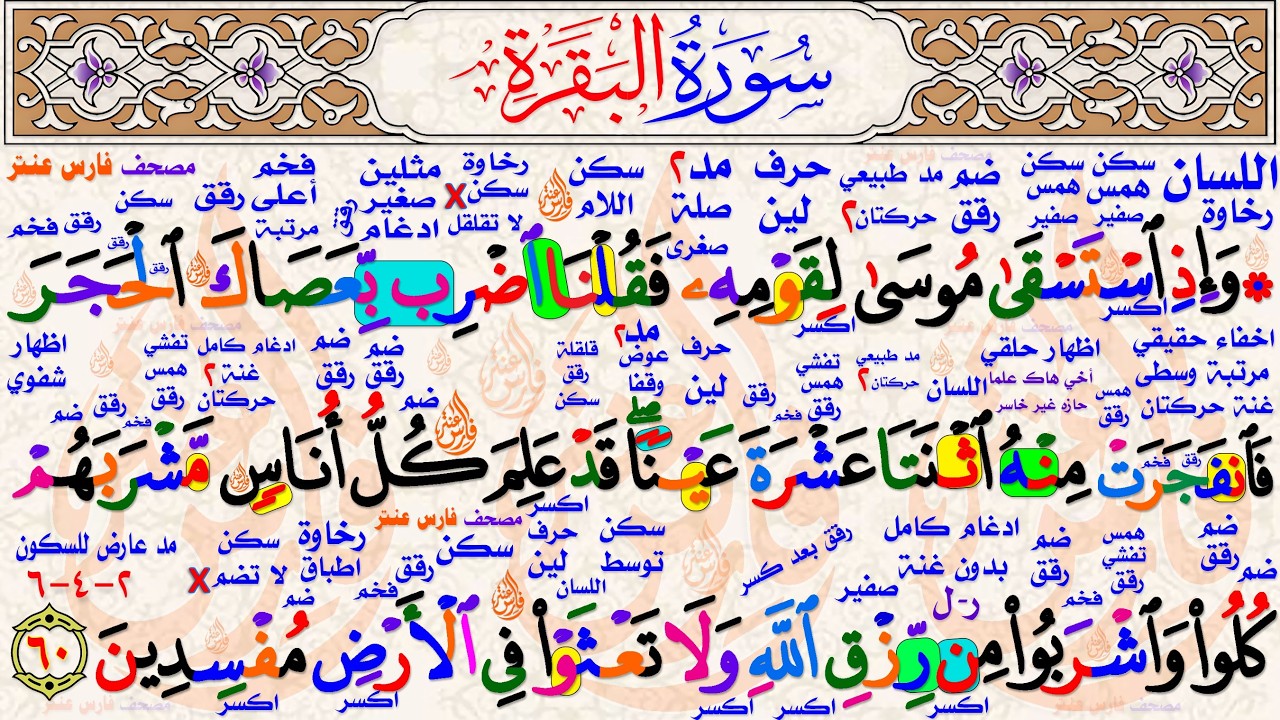 سُورَةُ البَقَرَةِ
اللسان سكن سكن ضم مد طبيعي حرف مد٢ سكن رخاوة مثلين فخم مصحف فارس عنتر
رخاوة همس همس رقق حركتان٢ لين صلة اللام سكن X صغير أعلى رقق سكن
صفير صفير صغرى لا تقلقل ادغام مرتبة رقق فخم
۞ وَإِذِ ٱسْتَسْقَىٰ مُوسَىٰ لِقَوْمِهِۦ فَقُلْنَا ٱضْرِب بِّعَصَاكَ ٱلْحَجَرَ
اكسر اكسر
اخفاء حقيقي اظهار حلقي مد طبيعي حرف مد٢ قلقلة ضم ضم ادغام كامل تفشي اظهار
مرتبة وسطى أخي هاك علما اللسان حركتان٢ تفشي همس لين عوض وقفا رقق رقق رقق غنة ٢ همس شفوي
غنة حركتان همس رقق حازه غير خاسر رقق فخم رقق سكن ضم حركتان رقق رقق فخم ضم
فَٱنفَجَرَتْ مِنْهُ ٱثْنَتَا عَشْرَةَ عَيْنًا ۖ قَدْ عَلِمَ كُلُّ أُنَاسٍ مَّشْرَبَهُمْ
اكسر مصحف فارس عنتر
ضم همس ضم ادغام كامل رقق بعد كسر سكن حرف سكن رخاوة سكن مد عارض للسكون
ضم رقق تفشي رقق رقق بدون غنة صفير توسط لين رقق اطباق لا تضم X ٢-٤-٦
فخم ر-ل اللسان فخم ضم
كُلُوا۟ وَٱشْرَبُوا۟ مِن رِّزْقِ ٱللَّهِ وَلَا تَعْثَوْا۟ فِى ٱلْأَرْضِ مُفْسِدِينَ ٦٠
اكسر اكسر اكسر اكسر اكسر